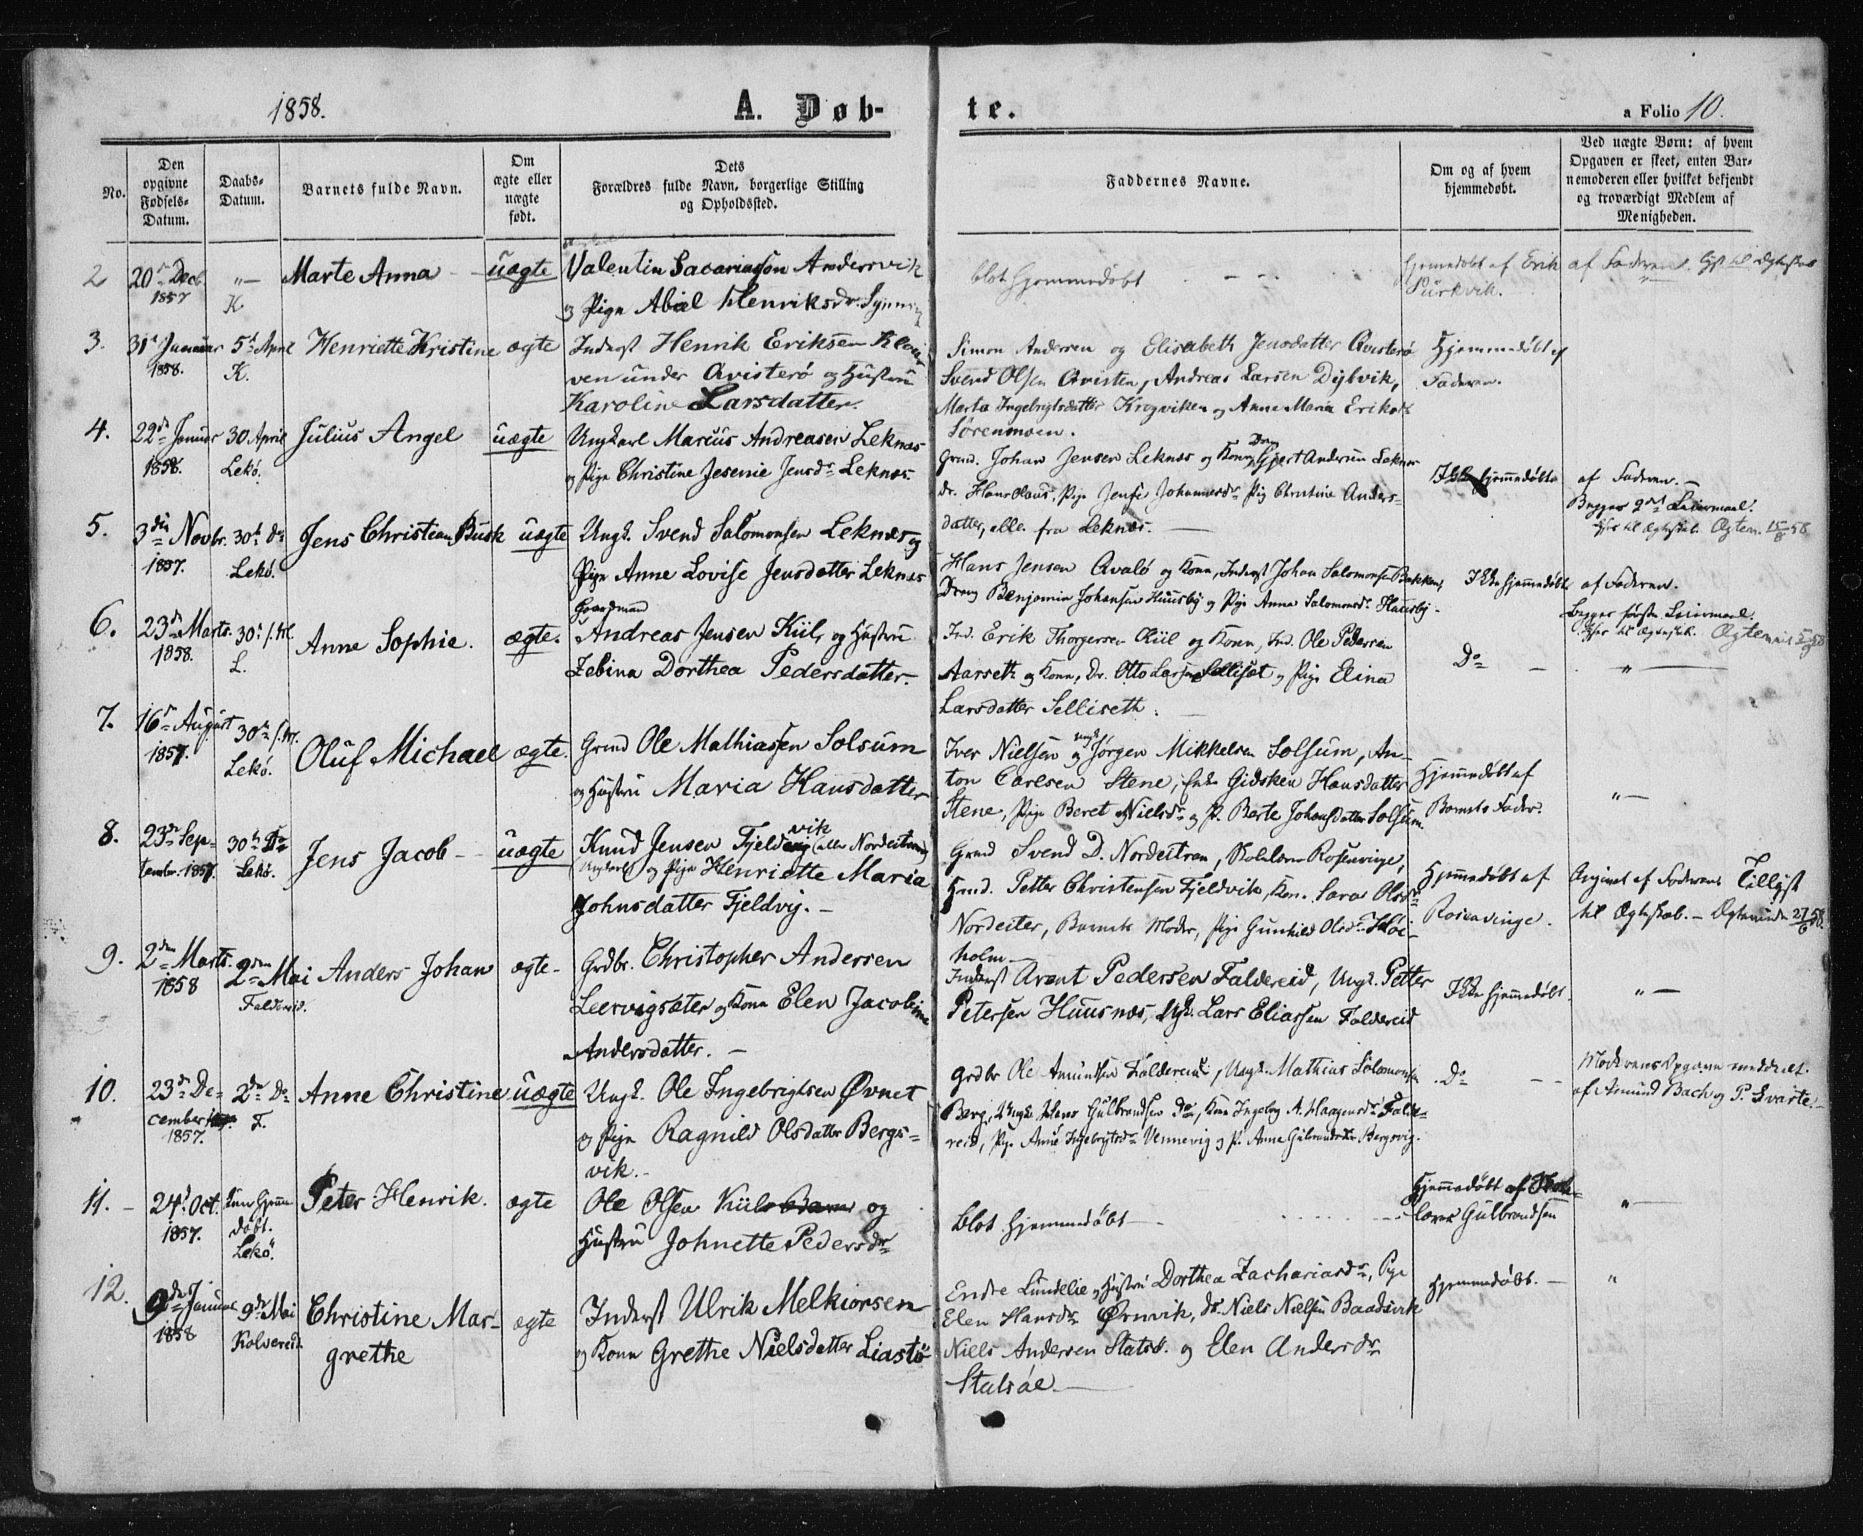 1858.
A. Døb-
te.
a Folio 10.
No.
Den
opgivne
Fødsels-
Datum.
Daabs-
Datum.
Barnets fulde Navn.
Om
ægte eller
uægte
født.
Dets
Forældres fulde Navn, borgerlige Stilling
og Opholdssted.
Faddernes Navne.
Om og af hvem
hjemmedøbt.
Ved uægte Børn: af hvem
Opgaven er skeet, enten Bar-
nemoderen eller hvilket bekjendt
og troværdigt Medlem af
Menigheden.
2
20de Decb
1857
"—
K
Marte Anna —
uægte
Valentin Sacariasson Andersvik
og Pige Abial Henriksdr.
blot hjemmedøbt — —
hjemmedøbt af Erik
Surkvik.
af Faderen.
3.
31te Januar
1858.
5te April
K.
Henriette Kristine
ægte
Inderst Henrik Eriksen
ven under Avisterø og Hustru
Karoline Larsdatter.
Simon Andersen og Elisabeth Jensdatter Avisterø
Svend Olsen Avisten, Andreas Larsen Dybvik,
Marta Ingebrigtsdatter Krogviken og Anne Maria Eriksdr
Sørenmoen.
Hjemmedøbt af
Faderen.
4.
22de Januar
1858.
30 April
Lekø.
Julius Angel
uægte
Ungkarl Marcus Andreasen Leknæs
og Pige Christine Jesenie Jensdr Leknæs.
Grmd. Johan Jensen Leknæs og Kone, Dreng Gjert Andersen Leknæs
dr. Hans Olaus, Pige Jense Johannesdr Pig Christine Anders-
datter, alle fra Leknæs. —
Ikke hjemmedøbt
af Faderen. —
Begges 2det Leiermaal.
5.
3die Novbr.
1857.
30te Do
Lekø.
Jens Christian Busk
uægte
Ungk. Svend Salomonsen Leknæs og
Pige Anne Lovise Jensdatter Leknæs
Hans Jensen Avalø og Kone, Inderst Johan Salomonsen Bakken,
Dreng Benjamin Johansen Huusby og Pige Anna Salomonsdr Huusby.
Ikke hjemmedøbt
af Faderen.
Begges første Leiermaal.
6.
23de Marts.
1858.
30te
L.
Anne Sophie.
ægte.
Gaardmand
Andreas Jensen Kiil, og Hustru
Zebina Dorthea Pedersdatter.
Ind. Erik Thorgersen Kiil og Kone, Ind. Ole Pedersen
Aarseth og Kone, Dr. Otto Larsen Selliset og Pige Elina
Larsdatter Selliseth.
Do —
" —
7.
16de August
1857.
30te
Lekø.
Oluf Michael
ægte.
Grmd Ole Mathiassen Solsum
og Hustru Maria Hansdatter
Iver Nielsen og ungk Jørgen Mikkelsen Solsum, An-
ton Carlsen Stene, Enke Gidsken Hansdatter
Stene, Pige Beret Nielsdr og P. Berte Johansdatter Solsum.
Hjemmedøbt af
Barnets Fader.
"—
8.
23de Sep-
tember. 1857.
30te Do
Lekø.
Jens Jacob —
uægte
Knud Jensen Fjeldvik (eller Nordeitran)
og Pige Henriette Maria
Johnsdatter Fjeldvig. —
Grmd Svend D. Nordeitran, Skolelærer Rosenvinge,
Grmd. Petter Christensen Fjeldvik, Kone Sara Olsdr
Nordeiter, Barnets Moder, Pige Gunhild Olsdr Høi-
holm —
Hjemmedøbt af
Rosenvinge.
Angivet af Faderen. Tillyst
til Ægteskab. — 27/6 58.
9.
2den Marts.
1858
2den Mai
Faldereid.
Anders Johan
ægte-
Grdbr. Christopher Andersen
Leervigsæter og Kone Elen Jacobine
Andersdatter. —
Inderst Arent Pedersen Faldereid, Ungk. Petter
Petersen Huusnæs, Ugk. Lars Eliassen Faldereid
Ikke hjemmedøbt.
"—
10.
23de De-
cember
1857.
2den Do
F.
Anne Christine
uægte
Ungk. Ole Ingebrigtsen Øvnet
og Pige Ragnild Olsdatter Bergs-
vik. —
Grdbr Ole Amundsen Faldereid, Ungk. Mathias Salomonsen
Berg, Ungk. Johans Gulbrandsen Do, Kone Ingeborg A. Haagensdr Falde-
reid, Pige Anne Ingebrigtsdr Vennevig og P. Anna Gulbrandsdr Bergsvig.
Do — —
Moderens Opgave meddeelt
af Amund Bach og P. Svarte. —
11. —
24de Oct.
1857.
døbt.
Lekø.
Peter Henrik.
ægte
Ole Olsen Kiil og
Hustru Johnette Pedersdr
blot hjemmedøbt —
Hjemmedøbt af Skole-
lærer Gulbrandsen
"—
12.
9de Januar
1858
9de Mai
Kolvereid.
Christine Mar-
grethe
ægte
Inderst Ulrik Melkiorsen
og Kone Grethe Nielsdatter Liastø
Endre Lundelie og Hustru Dorthea Zachariasdr, Pige
Elen Hansdr Ørnvik, dr. Niels Nielsen Baadsvik
Niels Andersen Statsø. og Elen Andersdr
Stalsøe. —
Hjemmedøbt. —
"